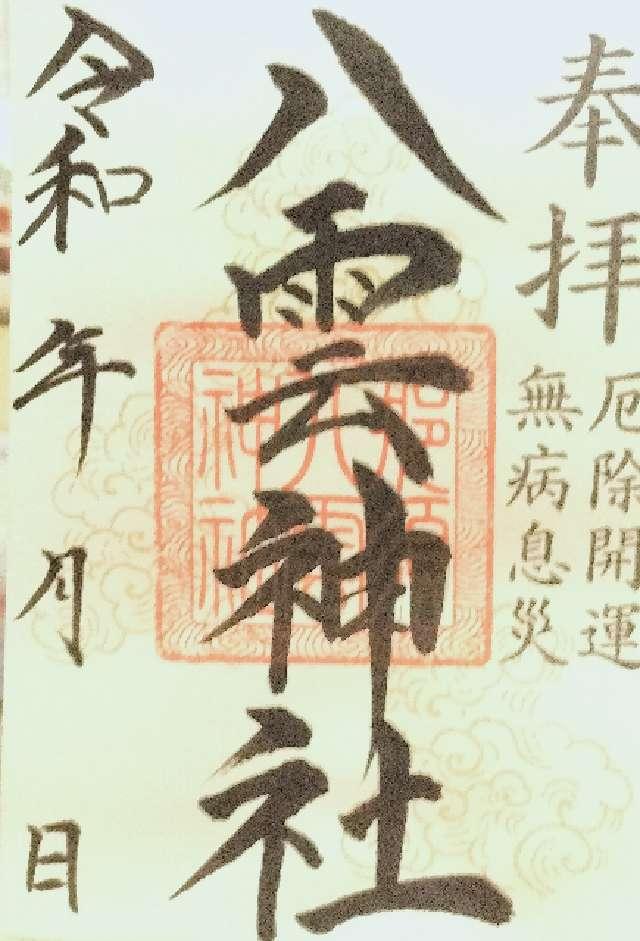 奉拝
厄除開運
無病息災
八雲神社
令和 年 月 日